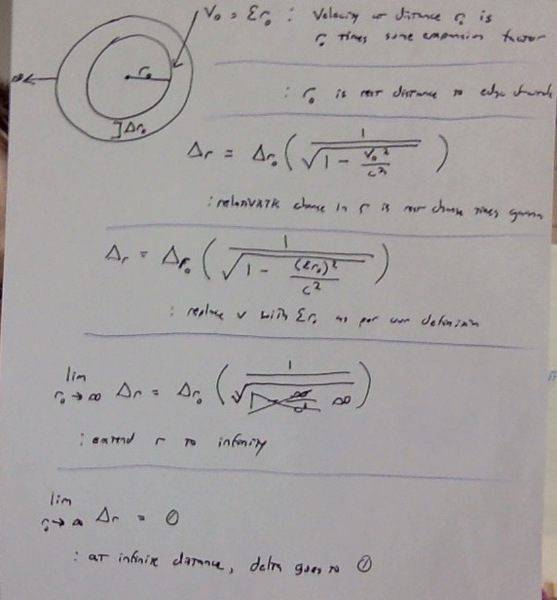 V₀ = Σr₀ : Velocity at distance r₀ is
r₀ times some expansion factor
r₀
Δr₀
: r₀ is rest distance to edge
Δr = Δr₀ ( 1 / √(1 - V₀²/c²) )
: relativistic change in r is rest change times gamma
Δr = Δr₀ ( 1 / √(1 - (Σr₀)²/c²) )
: replace v with Σr₀ as per our definition
lim r₀→∞ Δr = Δr₀ ( 1 / √∞ )
: extend r to infinity
lim r₀→∞ Δr = 0
: at infinite distance, delta goes to 0